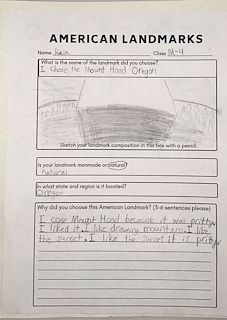 AMERICAN LANDMARKS
Name Class M-4
What is the name of the landmark did you choose?
I chose the Mount Hood Oregon
Sketch your landmark composition in this box with a pencil.
Is your landmark manmade or natural?
natural
In what state and region is it located?
Oregon
Why did you choose this American Landmark? (3-6 sentences please)
I cose Mount Hood because it was pritty.
I liked it. I like drawing mountain. I like
the sunset. I like the sunset it is pritty.